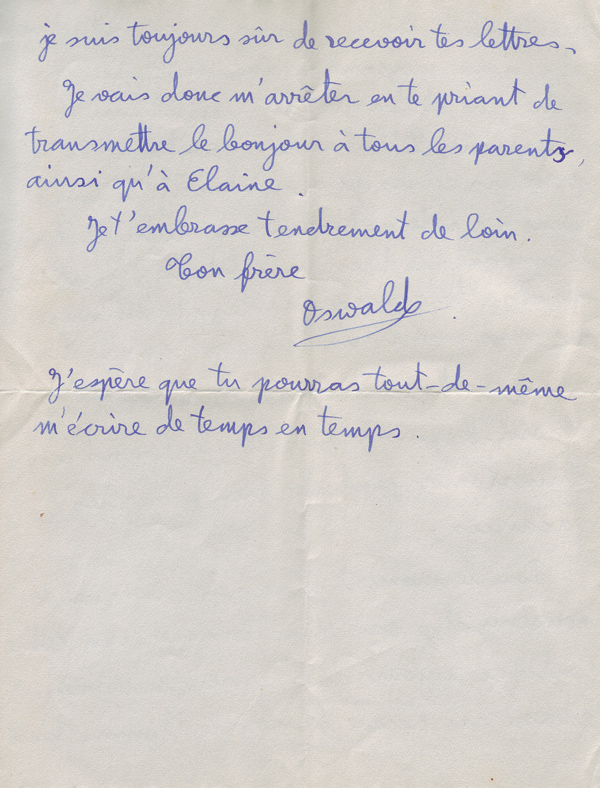 je suis toujours sûr de recevoir tes lettres.
Je vais donc m'arrêter en te priant de
transmettre le bonjour à tous les parents,
ainsi qu'à Elaine.
Je t'embrasse tendrement de loin.
Ton frère
Oswald.
J'espère que tu pourras tout-de-même
m'écrire de temps en temps.